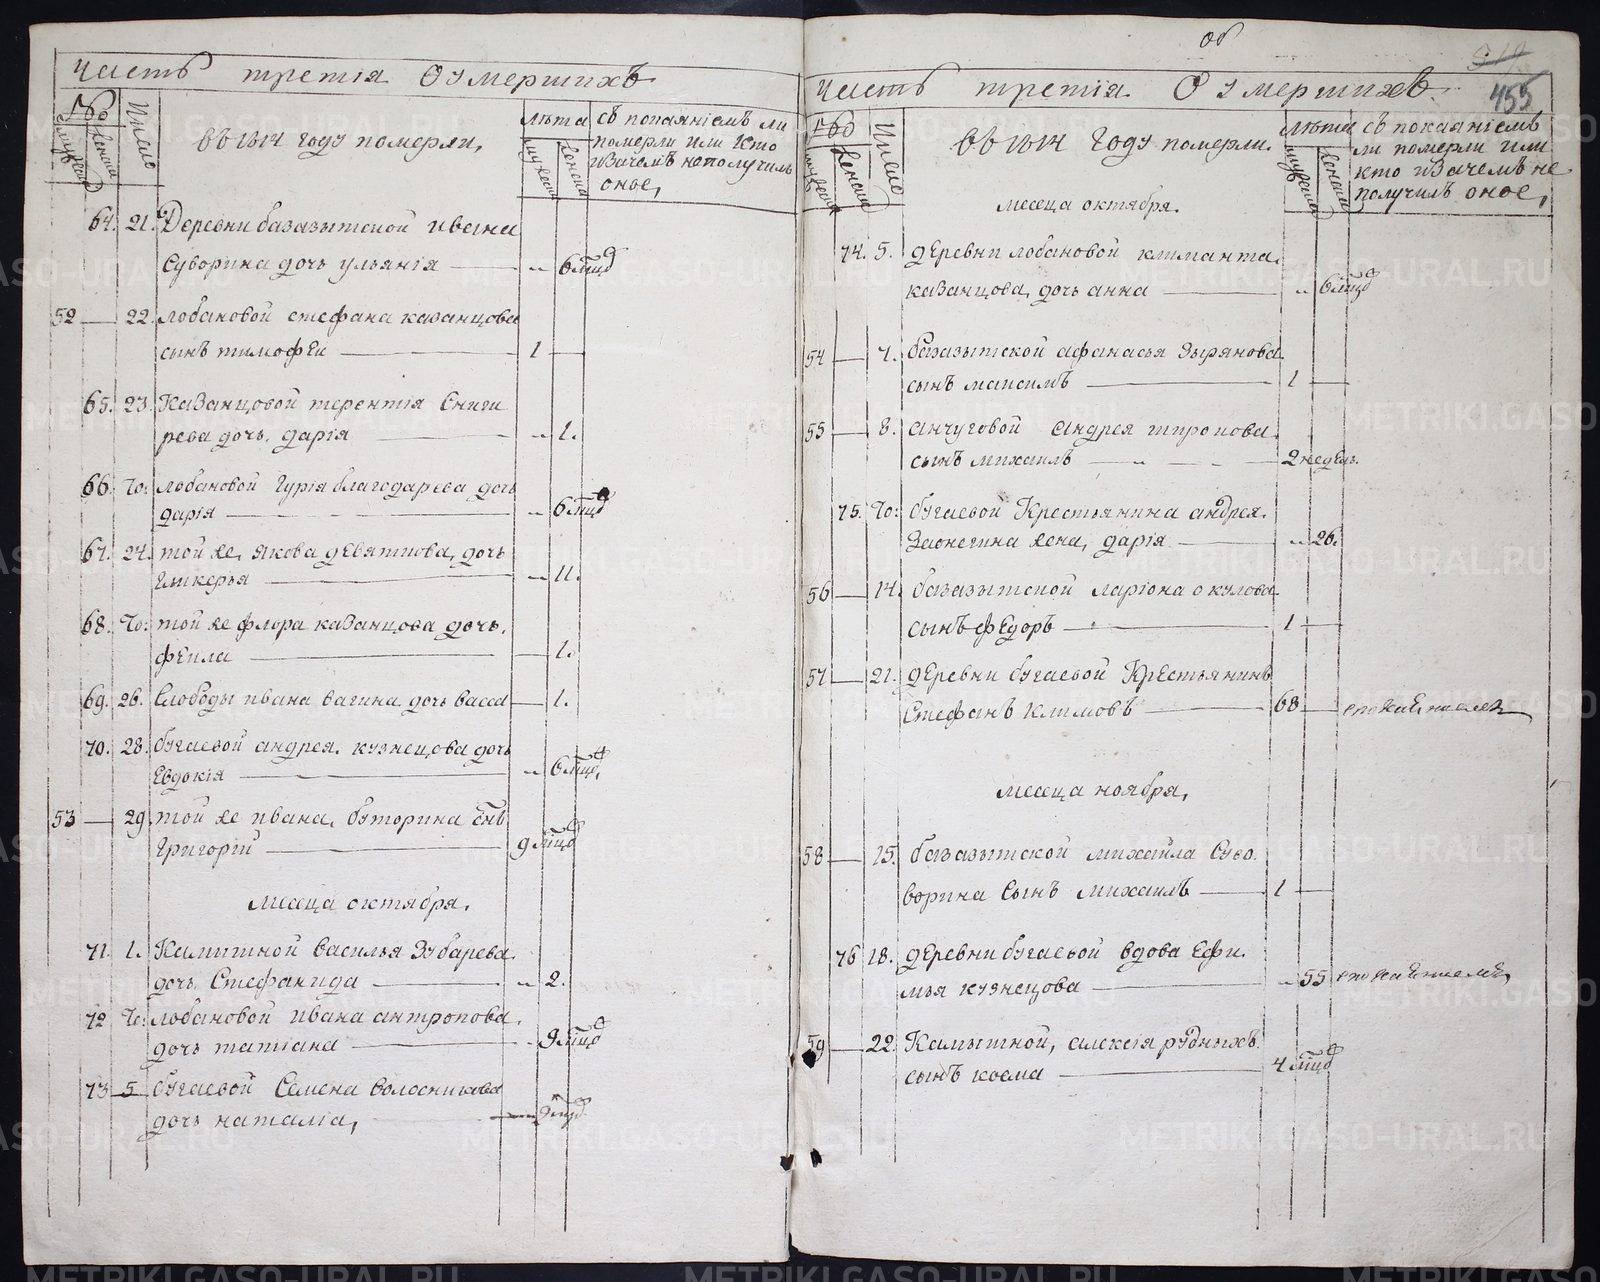 Часть третія О умершихъ
Число
въ 1814 году померли,
лѣта
мужеска
женска
съ покаяніемъ ли
померли или кто
и зачемъ не получилъ
оное,
64. 21. Деревни базазытской ивана
Суворина дочь ульянія — „ 6 мцд
52 — 22. лобановой стефана казанцова
сынъ тимофеи — 1 —
65. 23. Казанцовой терентія Сниги
рева дочь, дарія — „ 1.
66. То: лобановой Гурія благодарева дочь
дарія — „ 6 мцд
67. 24. той же, якова девяткова, дочь
Гликерья — „ 11.
68. То: той же флора казанцова дочь,
фекла — 1.
69. 26. Слободы ивана вагина дочь васса — 1.
70. 28. бугаевой андрея кузнецова дочь
Евдокія — „ 6 мцд,
53 — 29. той же ивана, буторина снъ
Григорій — 9 мцд
месеца октября,
71. 1. Камышной василья Зубарева
дочь, Стефанида — „ 2.
72 То: лобановой ивана антропова,
дочь татіана — „ 9 мцд
73 — 5 бугаевой Семена волосникова
дочь наталіа, — 9 мцд
об
455
Часть третія О умершихъ
Число
въ 1814 Году померли.
лѣта
мужеска
женска
съ покаяніемъ
ли померли или
кто и зачемъ не
получилъ оное,
месеца октября.
74. 5. деревни лобановой климанта
казанцова, дочь анна — „ 6 мцд
54 — 7. базазытской афанасья Зырянова
сынъ максимъ — 1 —
55 — 8. анчуговой андрея миронова
сынъ михаилъ — 2 недель.
75. То: бугаевой Крестьянина андрея
Заонегина жена, дарія — „ 26.
56 — 14. базазытской ларіона окулова
сынъ федоръ — 1 —
57 — 21. деревни бугаевой Крестьянинъ
Стефанъ климовъ — 68 —
месеца ноября,
58 — 15. базазытской михайла Суво
ворина Сынъ михаилъ — 1 —
76 18. деревни бугаевой вдова Ефи
мья кузнецова — „ 55
59 — 22. Камышной, алексія рудныхъ
сынъ косма — 4 мцд
METRIKI.GASO-URAL.RU